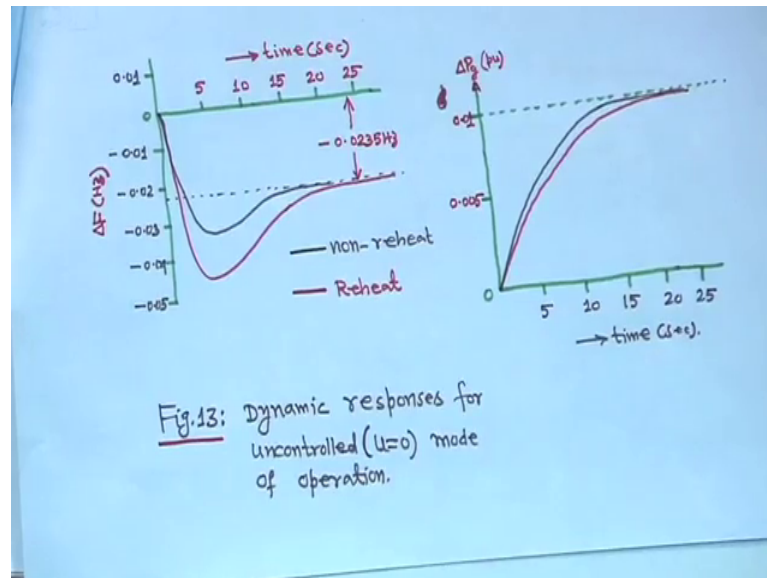 → time (sec)
0.01
5 10 15 20 25
0
-0.01
-0.02
-0.03
-0.04
-0.05
ΔF (Hz)
-0.0235Hz
non-reheat
Reheat
ΔPg (pu)
0.01
0.005
0
5 10 15 20 25
→ time (sec).
Fig.13: Dynamic responses for
uncontrolled (u=0) mode
of operation.